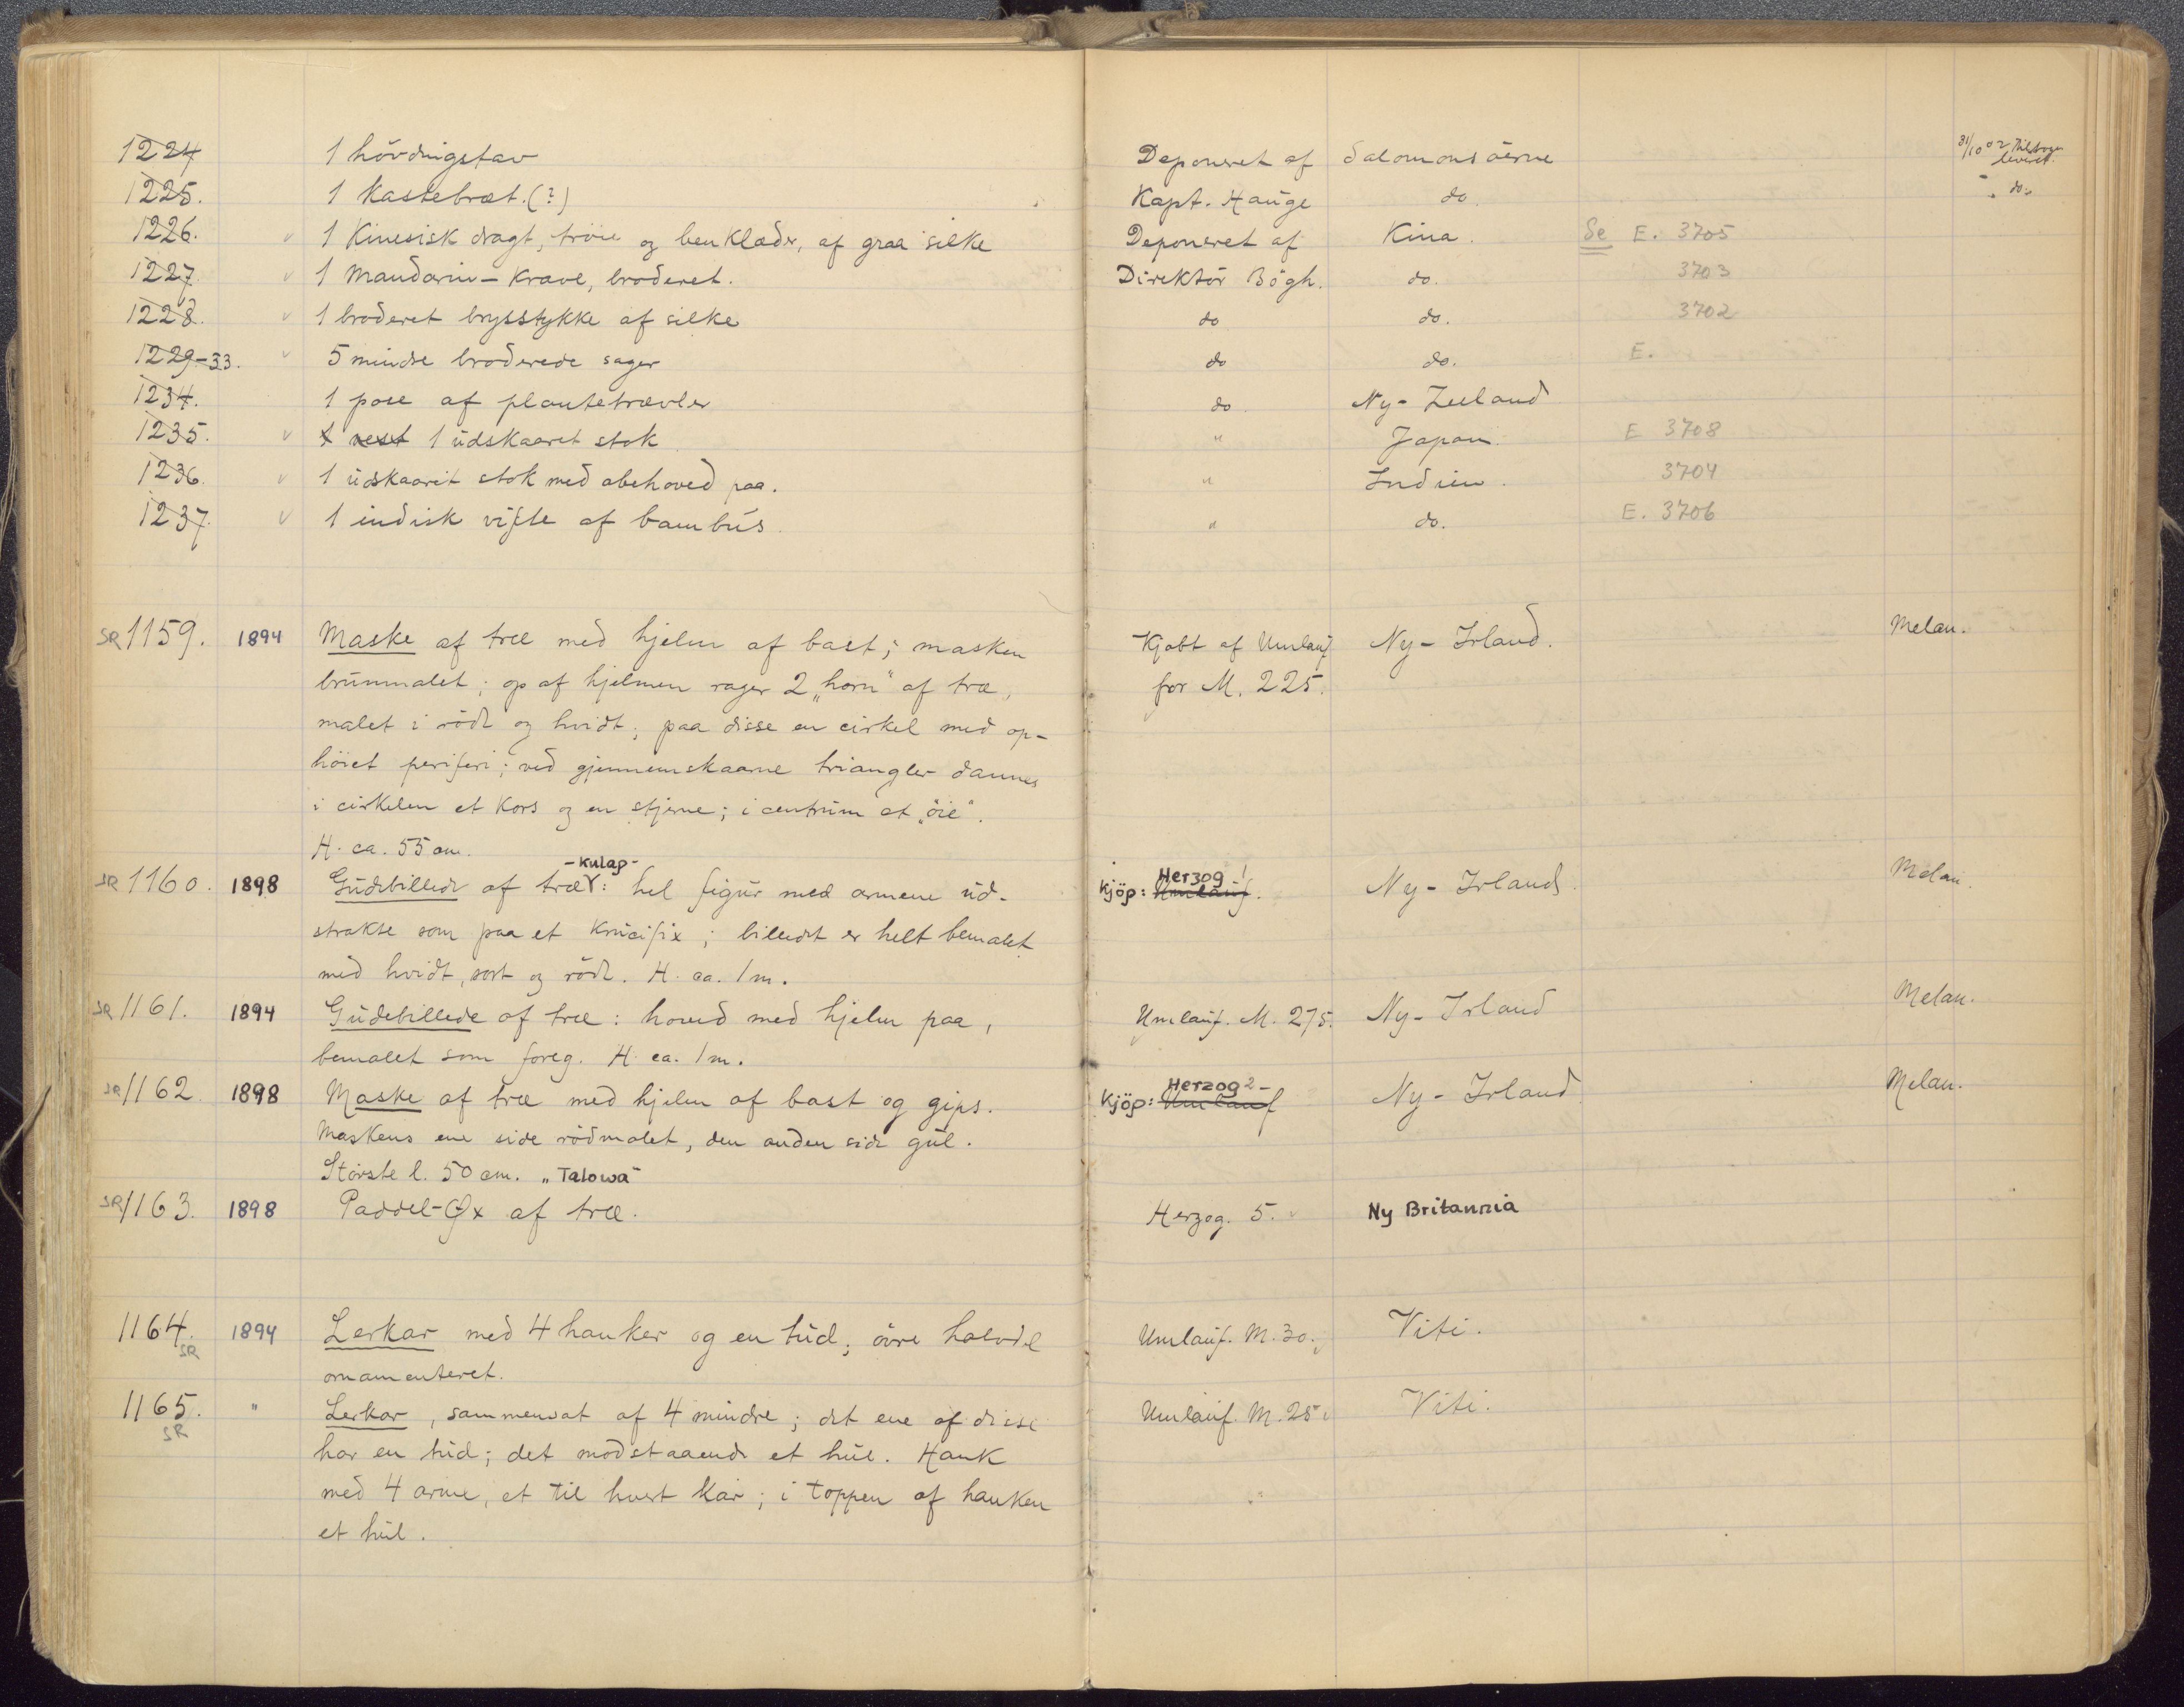 1224 1 hövdingstav Deponeret af Salomonsöerne 31/10 02
1225. 1 Kastebræt. (?) Kapt. Hauge do. " do.
1226. 1 Kinesisk dragt, tröie og benklæder, af graa silke Deponeret af Kina. Se E. 3705
1227. 1 Mandarin-krave, broderet. Direktör Bögh. do. 3703
1228. 1 broderet brystykke af silke do do. 3702
1229-33. 5 mindre broderede sager do do. E.
1234. 1 pose af plantetrævler do Ny-Zeeland
1235. 1 vest 1 udskaaret stok " Japan. E 3708
1236. 1 udskaaret stok med abehoved paa. " Indien. 3704
1237. 1 indisk vifte af bambus. " do. E. 3706
SR 1159. 1894 Maske af træ med hjelm af bast; masken Kjøbt af Umlauf Ny-Irland. Melan.
brunmalet; op af hjelmen rager 2 „horn" af træ, for M. 225.
malet i rödt og hvidt; paa disse en cirkel med op-
höiet periferi; ved gjennemskaarne triangler dannes
i cirkelen et Kors og en stjerne; i centrum et „öie".
H. ca. 55 cm.
-Kulap-
SR 1160. 1898 Gudebillede af træ: hel figur med armene ud- Kjöp: Umlauf. Herzog 1 Ny-Irland. Melan.
strakte som paa et Krucifix; billedet er helt bemalet
med hvidt, sort og rödt. H. ca. 1 m.
SR 1161. 1894 Gudebillede af træ: hoved med hjelm paa, Umlauf. M. 275. Ny-Irland Melan.
bemalet som foreg. H. ca. 1 m.
SR 1162. 1898 Maske af træ med hjelm af bast og gips. Kjöp: Umlauf Herzog 2- Ny-Irland Melan.
Maskens ene side rödmalet, den anden side gul.
Störste l. 50 cm. „Talowa"
SR 1163. 1898 Paddel-Øx af træ. Herzog. 5. Ny Britannia
1164. SR 1894 Lerkar med 4 hanker og en tud; övre halvdel Umlauf. M. 30. Viti.
ornamenteret.
1165. SR " Lerkar, sammensat af 4 mindre; det ene af disse Umlauf. M. 25. Viti.
har en tud; det modstaaende et hul. Hank
med 4 arme, et til hvert kar; i toppen af hanken
et hul.